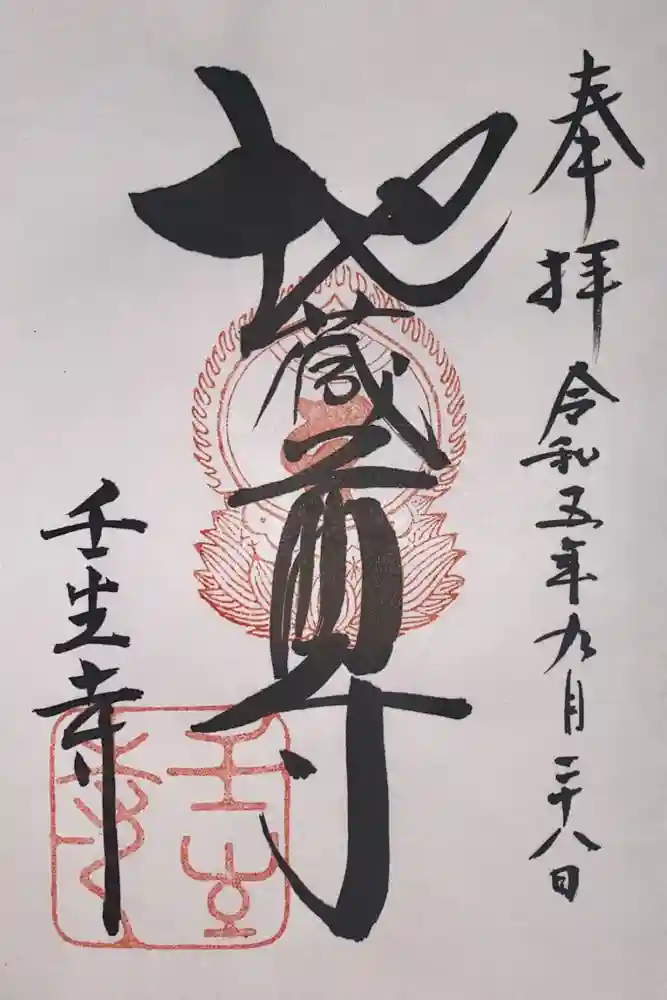 奉拝 令和五年九月二十八日
地蔵尊
壬生寺
壬生